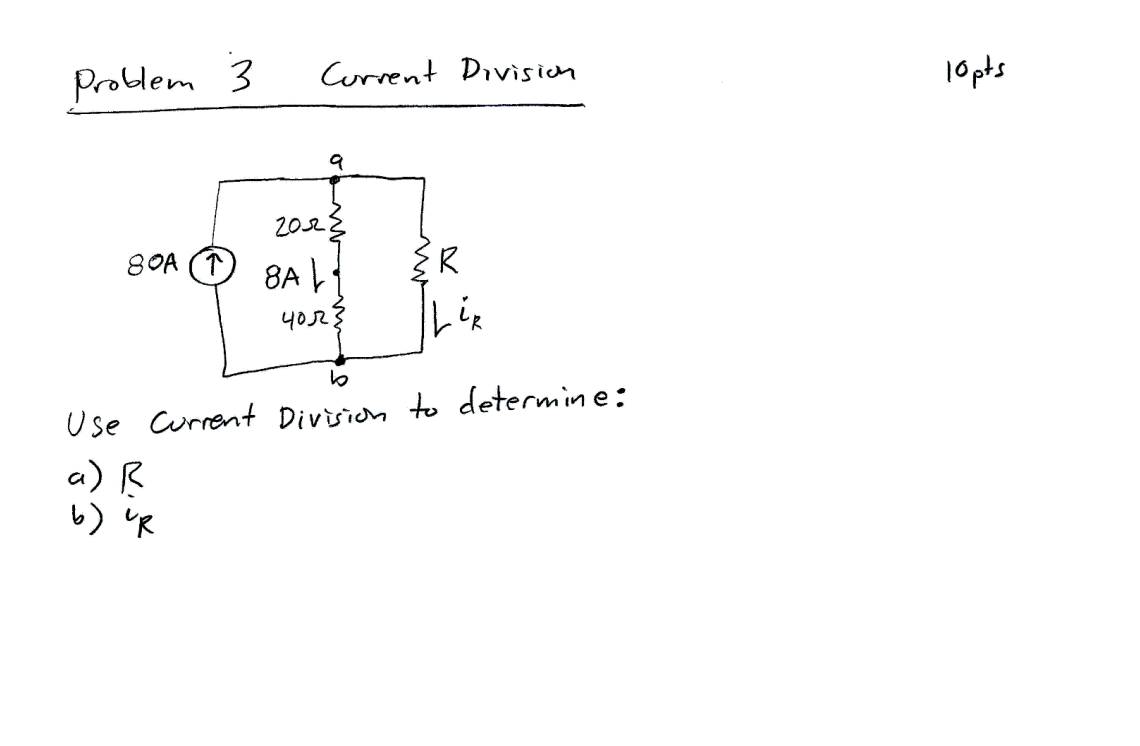 Problem 3 Current Division 10pts
a
20Ω
80A ↑ 8A R
40Ω iR
b
Use Current Division to determine:
a) R
b) iR